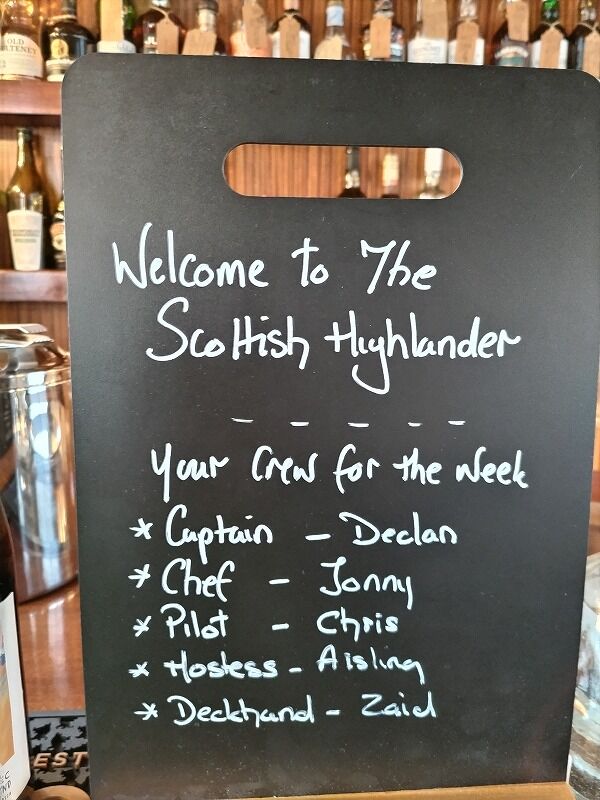 OLD
Welcome to The
Scottish Highlander
- - - - -
Your Crew for the Week
* Captain - Declan
* Chef - Jonny
* Pilot - Chris
* Hostess - Aisling
* Deckhand - Zaid
EST